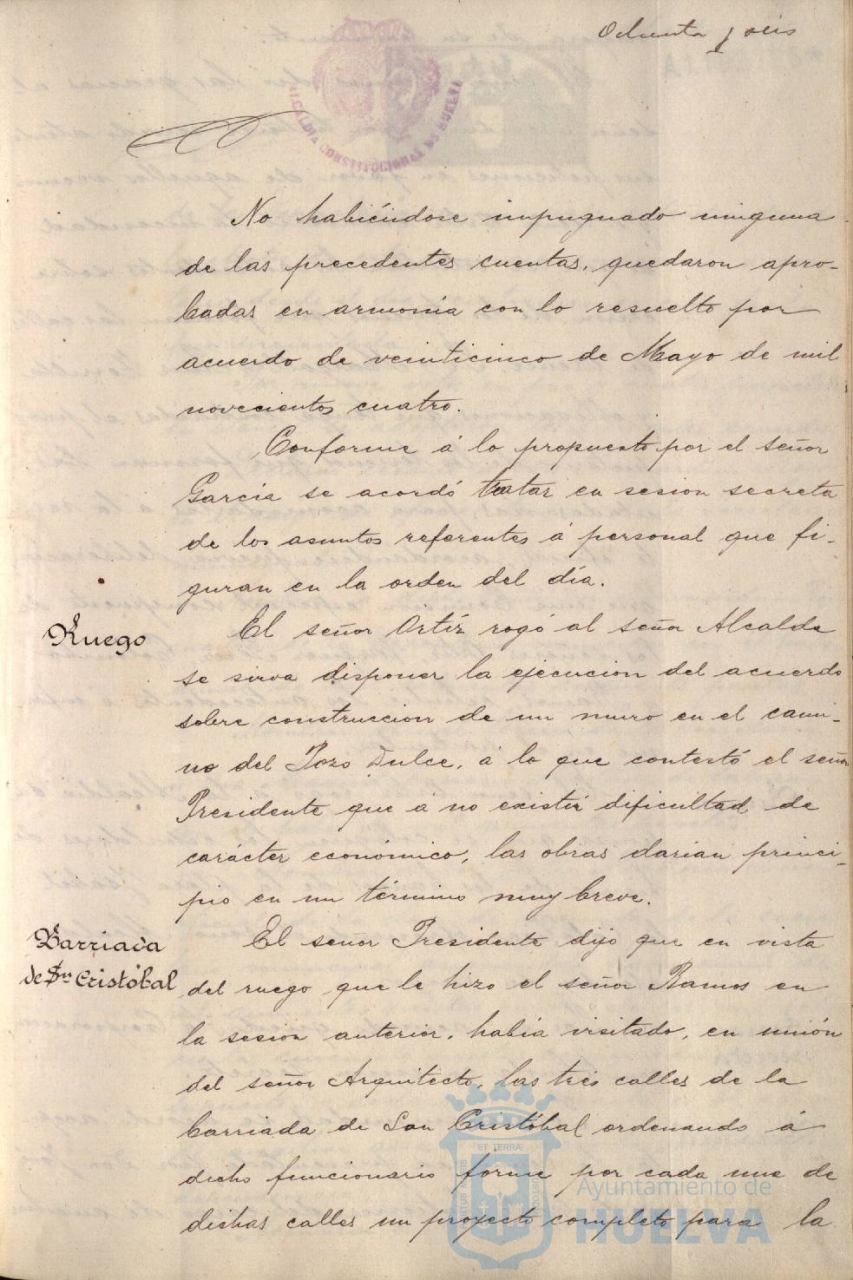 Ochenta y seis
ALCALDIA CONSTITUCIONAL DE HUELVA
No habiéndose impugnado ninguna
de las precedentes cuentas, quedaron apro-
badas en armonía con lo resuelto por
acuerdo de veinticinco de Mayo de mil
novecientos cuatro.
Conforme á lo propuesto por el señor
García se acordó tratar en sesion secreta
de los asuntos referentes á personal que fi-
guran en la orden del día.
Ruego
El señor Ortíz rogó al señor Alcalde
se sirva disponer la ejecucion del acuerdo
sobre construccion de un muro en el cami-
no del Pozo Dulce, á lo que contestó el señor
Presidente que á no existir dificultad de
carácter económico, las obras darian princi-
pio en un término muy breve.
Barriada
de Sn Cristóbal
El señor Presidente dijo que en vista
del ruego que le hizo el señor Ramos en
la sesion anterior, había visitado, en unión
del señor Arquitecto, las tres calles de la
barriada de San Cristóbal ordenando á
dicho funcionario forme por cada una de
dichas calles un proyecto completo para la
ET TERRA
Ayuntamiento de
HUELVA